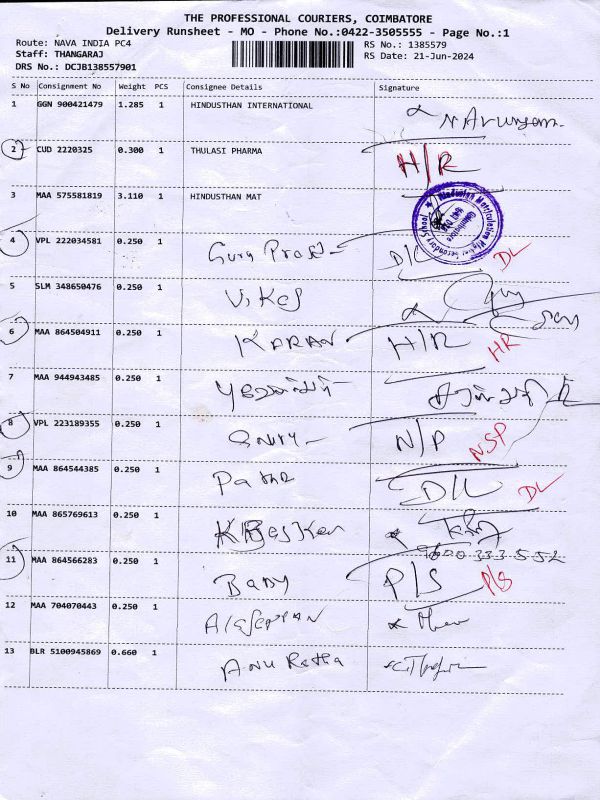 THE PROFESSIONAL COURIERS, COIMBATORE
Delivery Runsheet - MO - Phone No.:0422-3505555 - Page No.:1
Route: NAVA INDIA PC4 RS No.: 1385579
Staff: THANGARAJ RS Date: 21-Jun-2024
DRS No.: DCJB138557901
S No Consignment No Weight PCS Consignee Details Signature
1 GGN 900421479 1.285 1 HINDUSTHAN INTERNATIONAL
2 CUD 2220325 0.300 1 THULASI PHARMA H/R
3 MAA 575581819 3.110 1 HINDUSTHAN MAT
4 VPL 222034581 0.250 1 D/L DL
5 SLM 348650476 0.250 1
6 MAA 864504911 0.250 1 KARAN H/R HR
7 MAA 944943485 0.250 1
8 VPL 223189355 0.250 1 N/P NSP
9 MAA 864544385 0.250 1 D/L DL
10 MAA 865769613 0.250 1
11 MAA 864566283 0.250 1 Baby P/S P/S
12 MAA 704070443 0.250 1
13 BLR 5100945869 0.660 1 Anu Ratha